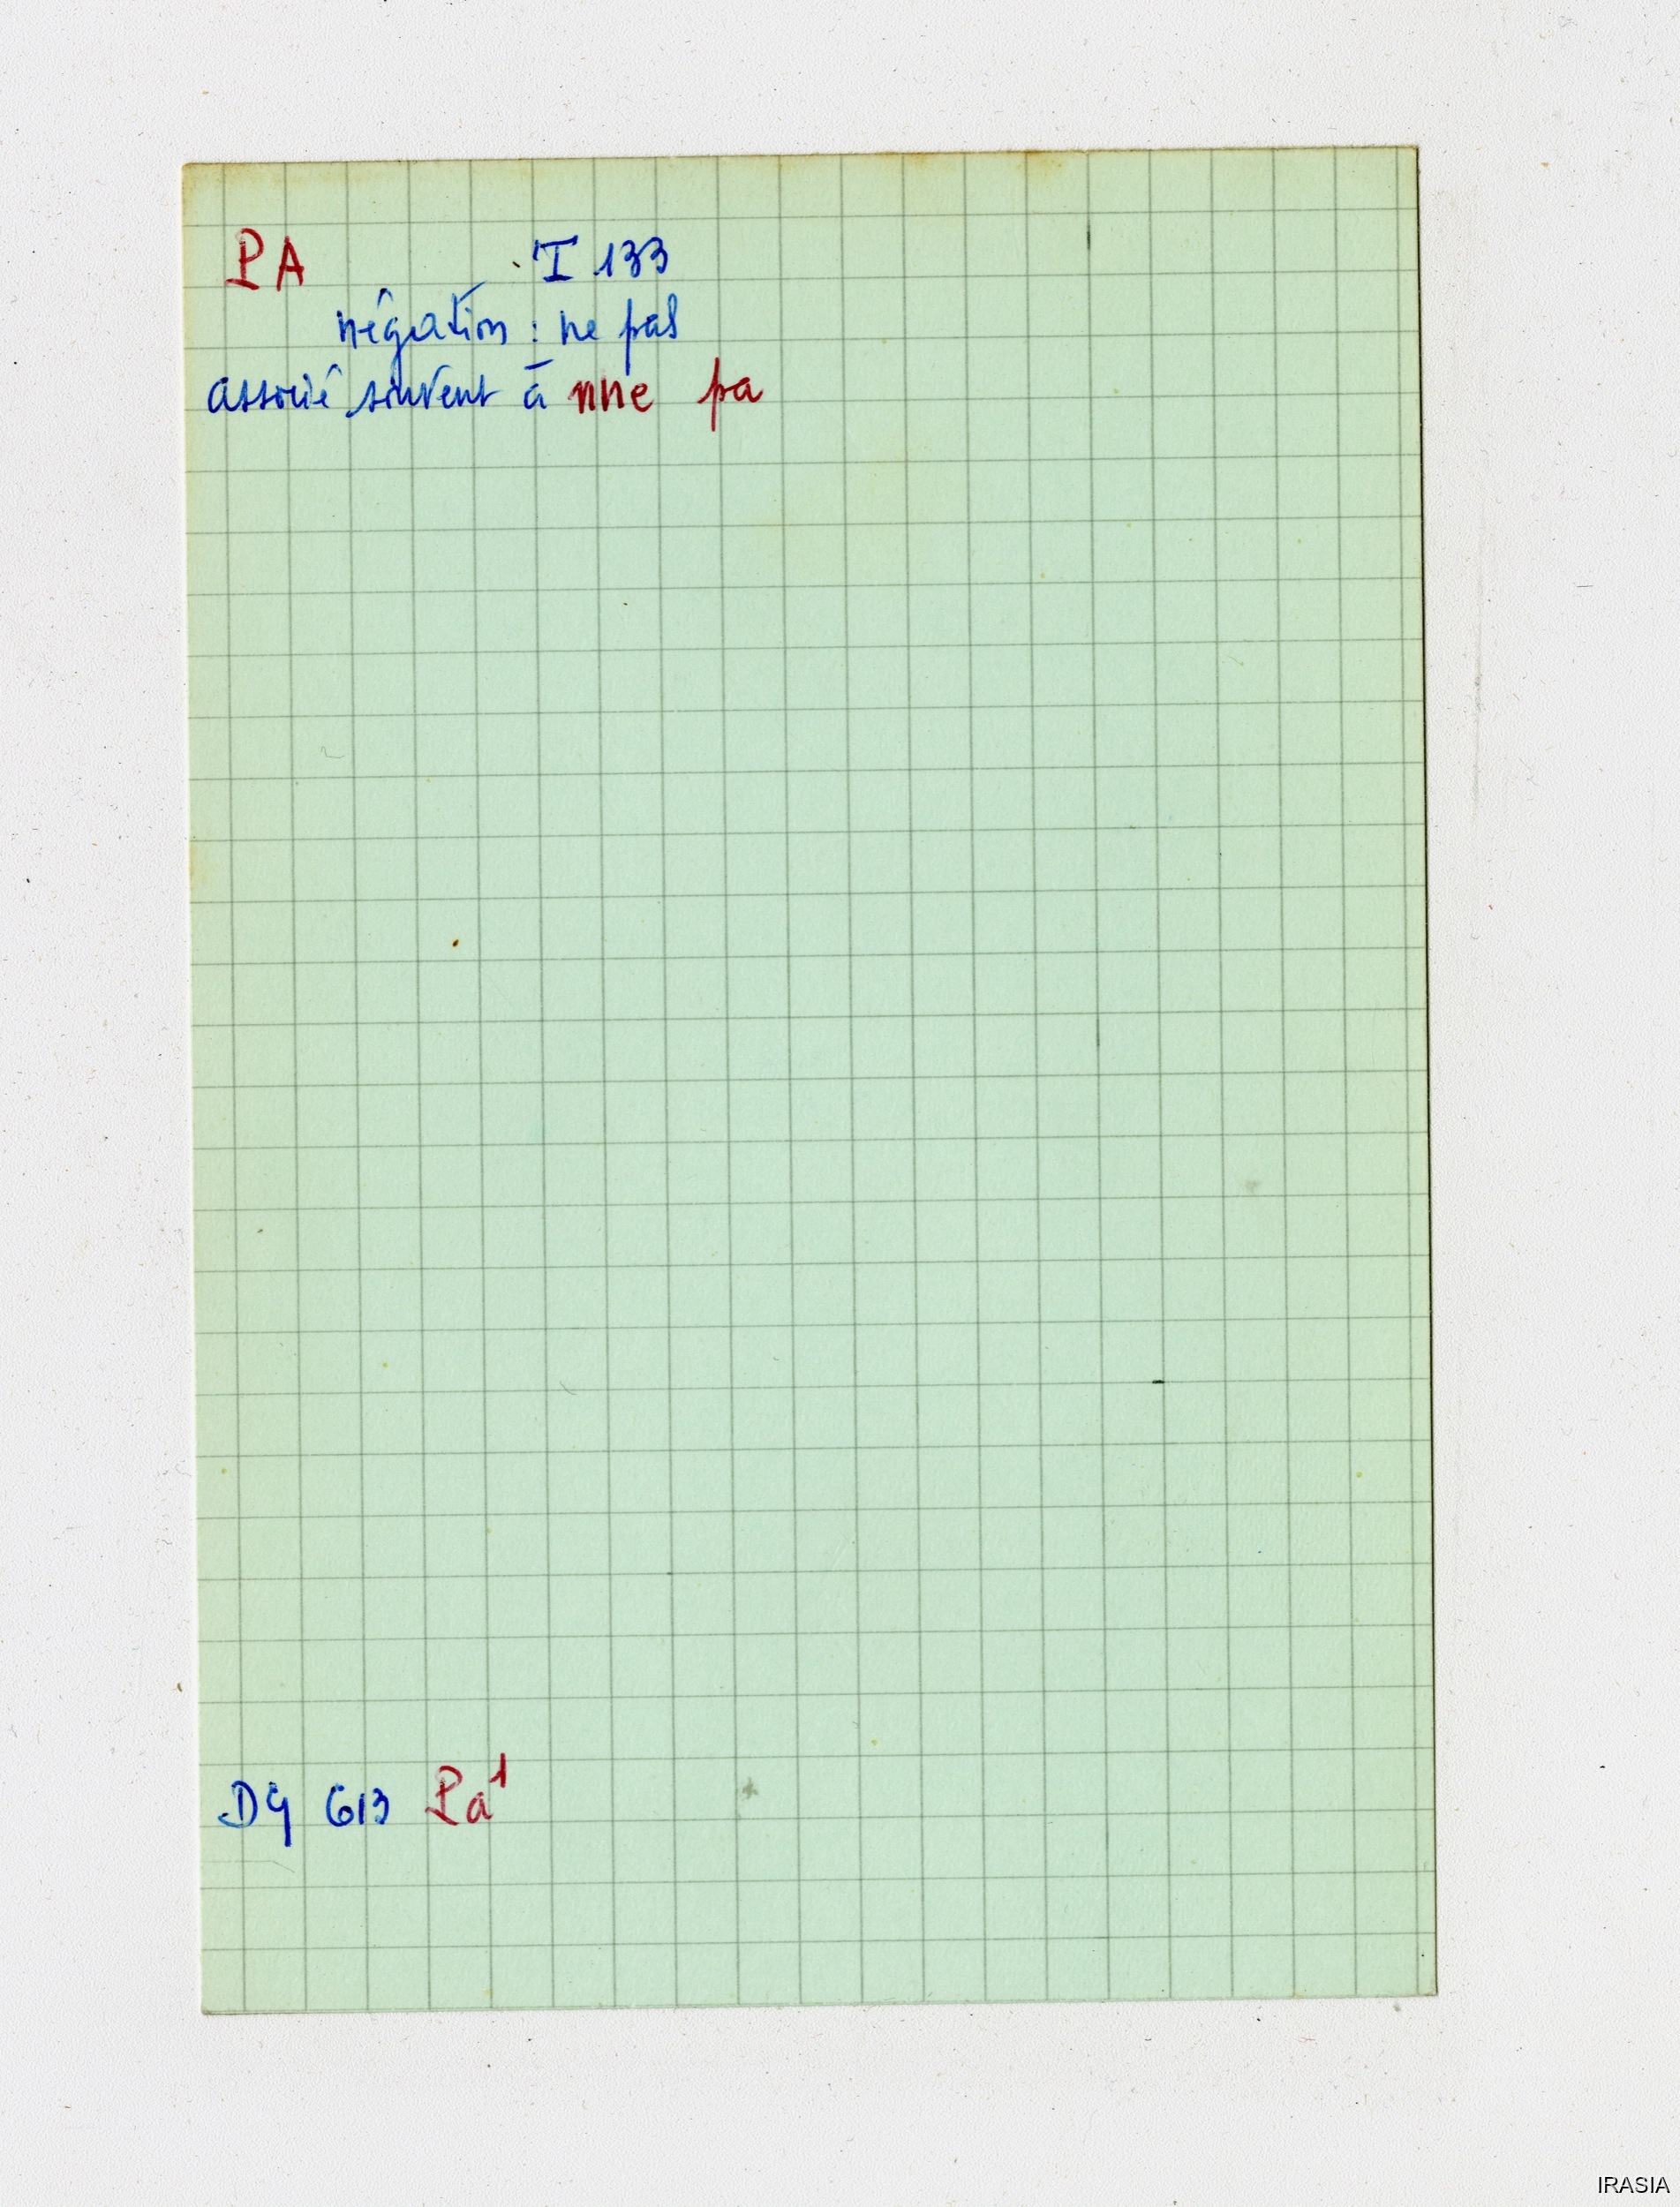 PA I 133
négation : ne pas
associé souvent à nne pa
DG 613 Pa¹
IRASIA